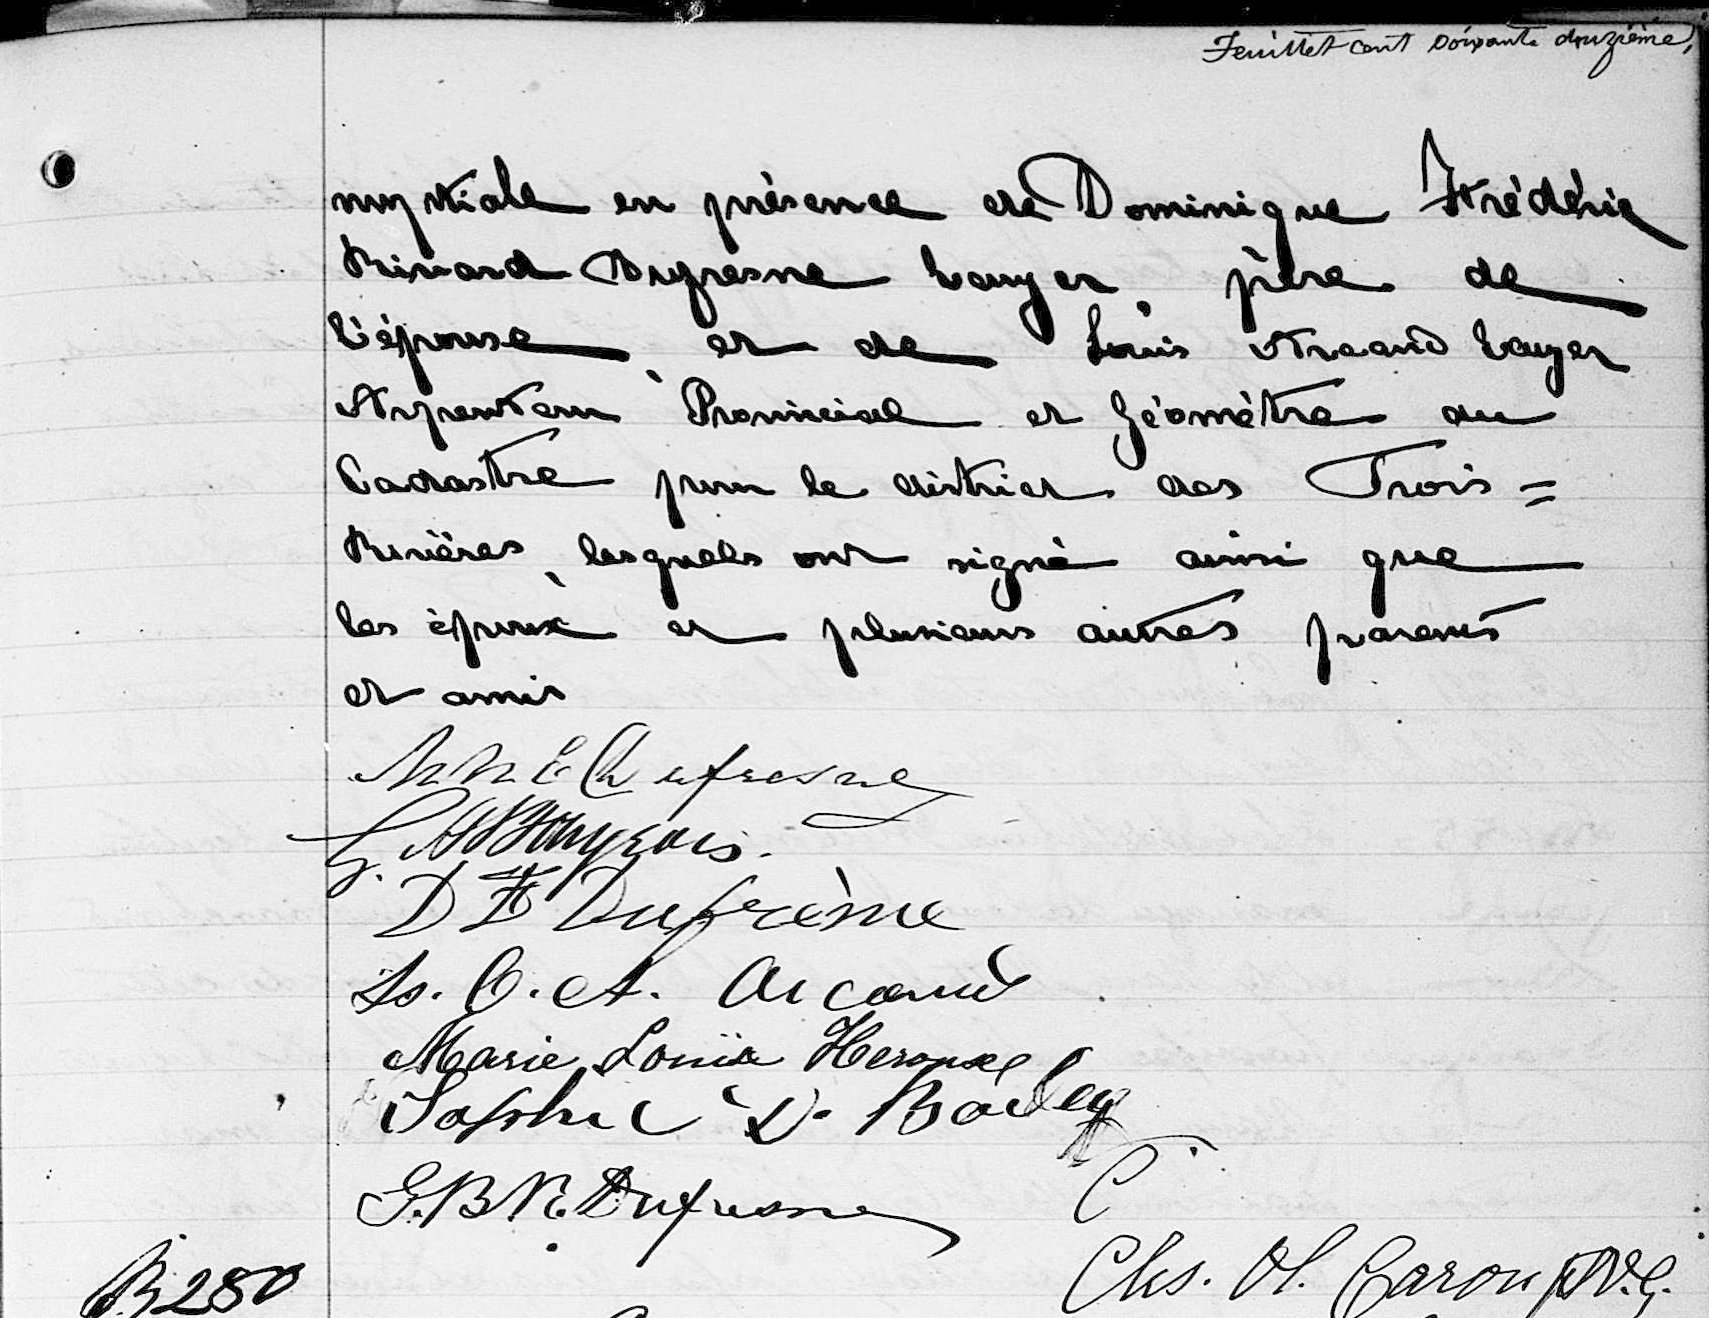 Feuillet cent soixante douzième,
nuptiale en présence de Dominique Frédéric
Rivard Dufresne Ecuyer père de
l'épouse, et de Louis Arcand Ecuyer
Arpenteur Provincial et Géomètre du
Cadastre pour le district des Trois=
Rivières, lesquels ont signé ainsi que
les époux et plusieurs autres parents
et amis
Dufresne
Bourgeois.
D F Dufrèsne
Ls. O. A. Arcand
Marie Louise Heroux
Sophie D. Bailey
G. B. R. Dufresne
C
Chs. O. Caron ptre V.G.
B 280